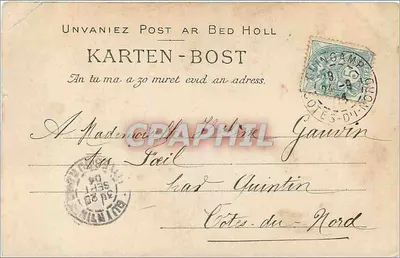 UNVANIEZ POST AR BED HOLL
KARTEN-BOST
An tu ma a zo miret evid an adress.
GUINGAMP
COTES-DU-NORD
CPRAPHIL
A Mademoiselle Gauvin
par Quintin
Côtes-du-Nord
QUINTIN
SEPT
04